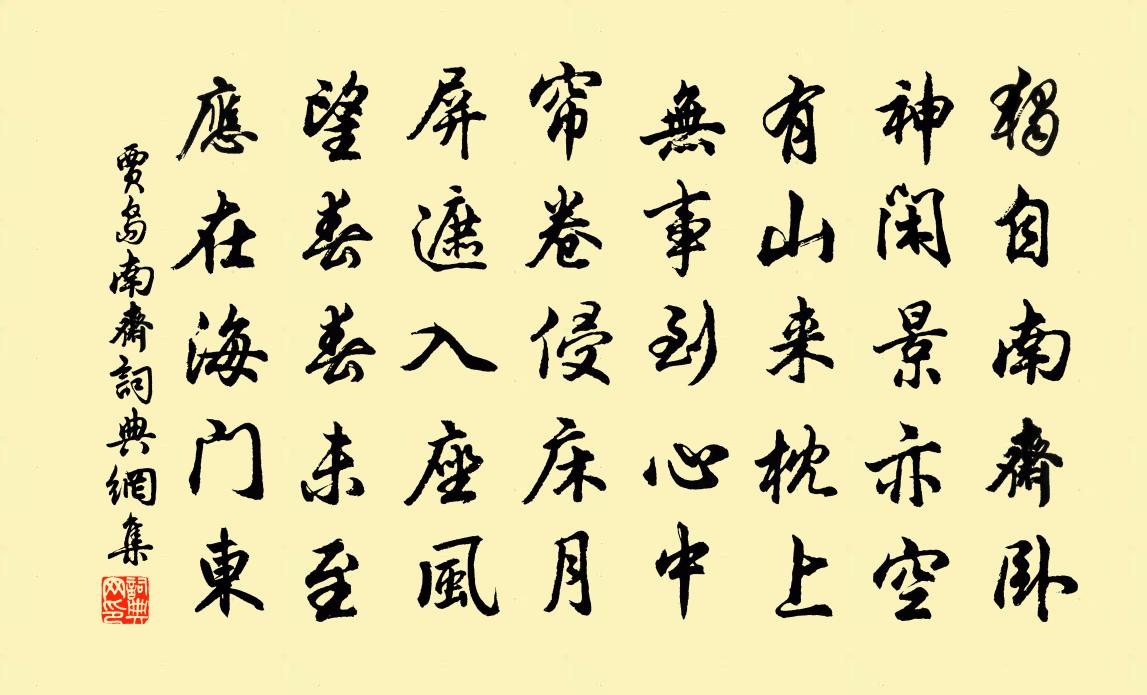 獨自南齋卧
神閑景亦空
有山来枕上
無事到心中
帘卷侵床月
屏遮入座風
望春春未至
應在海门東
賈島南齋詞典網集
詞典網印